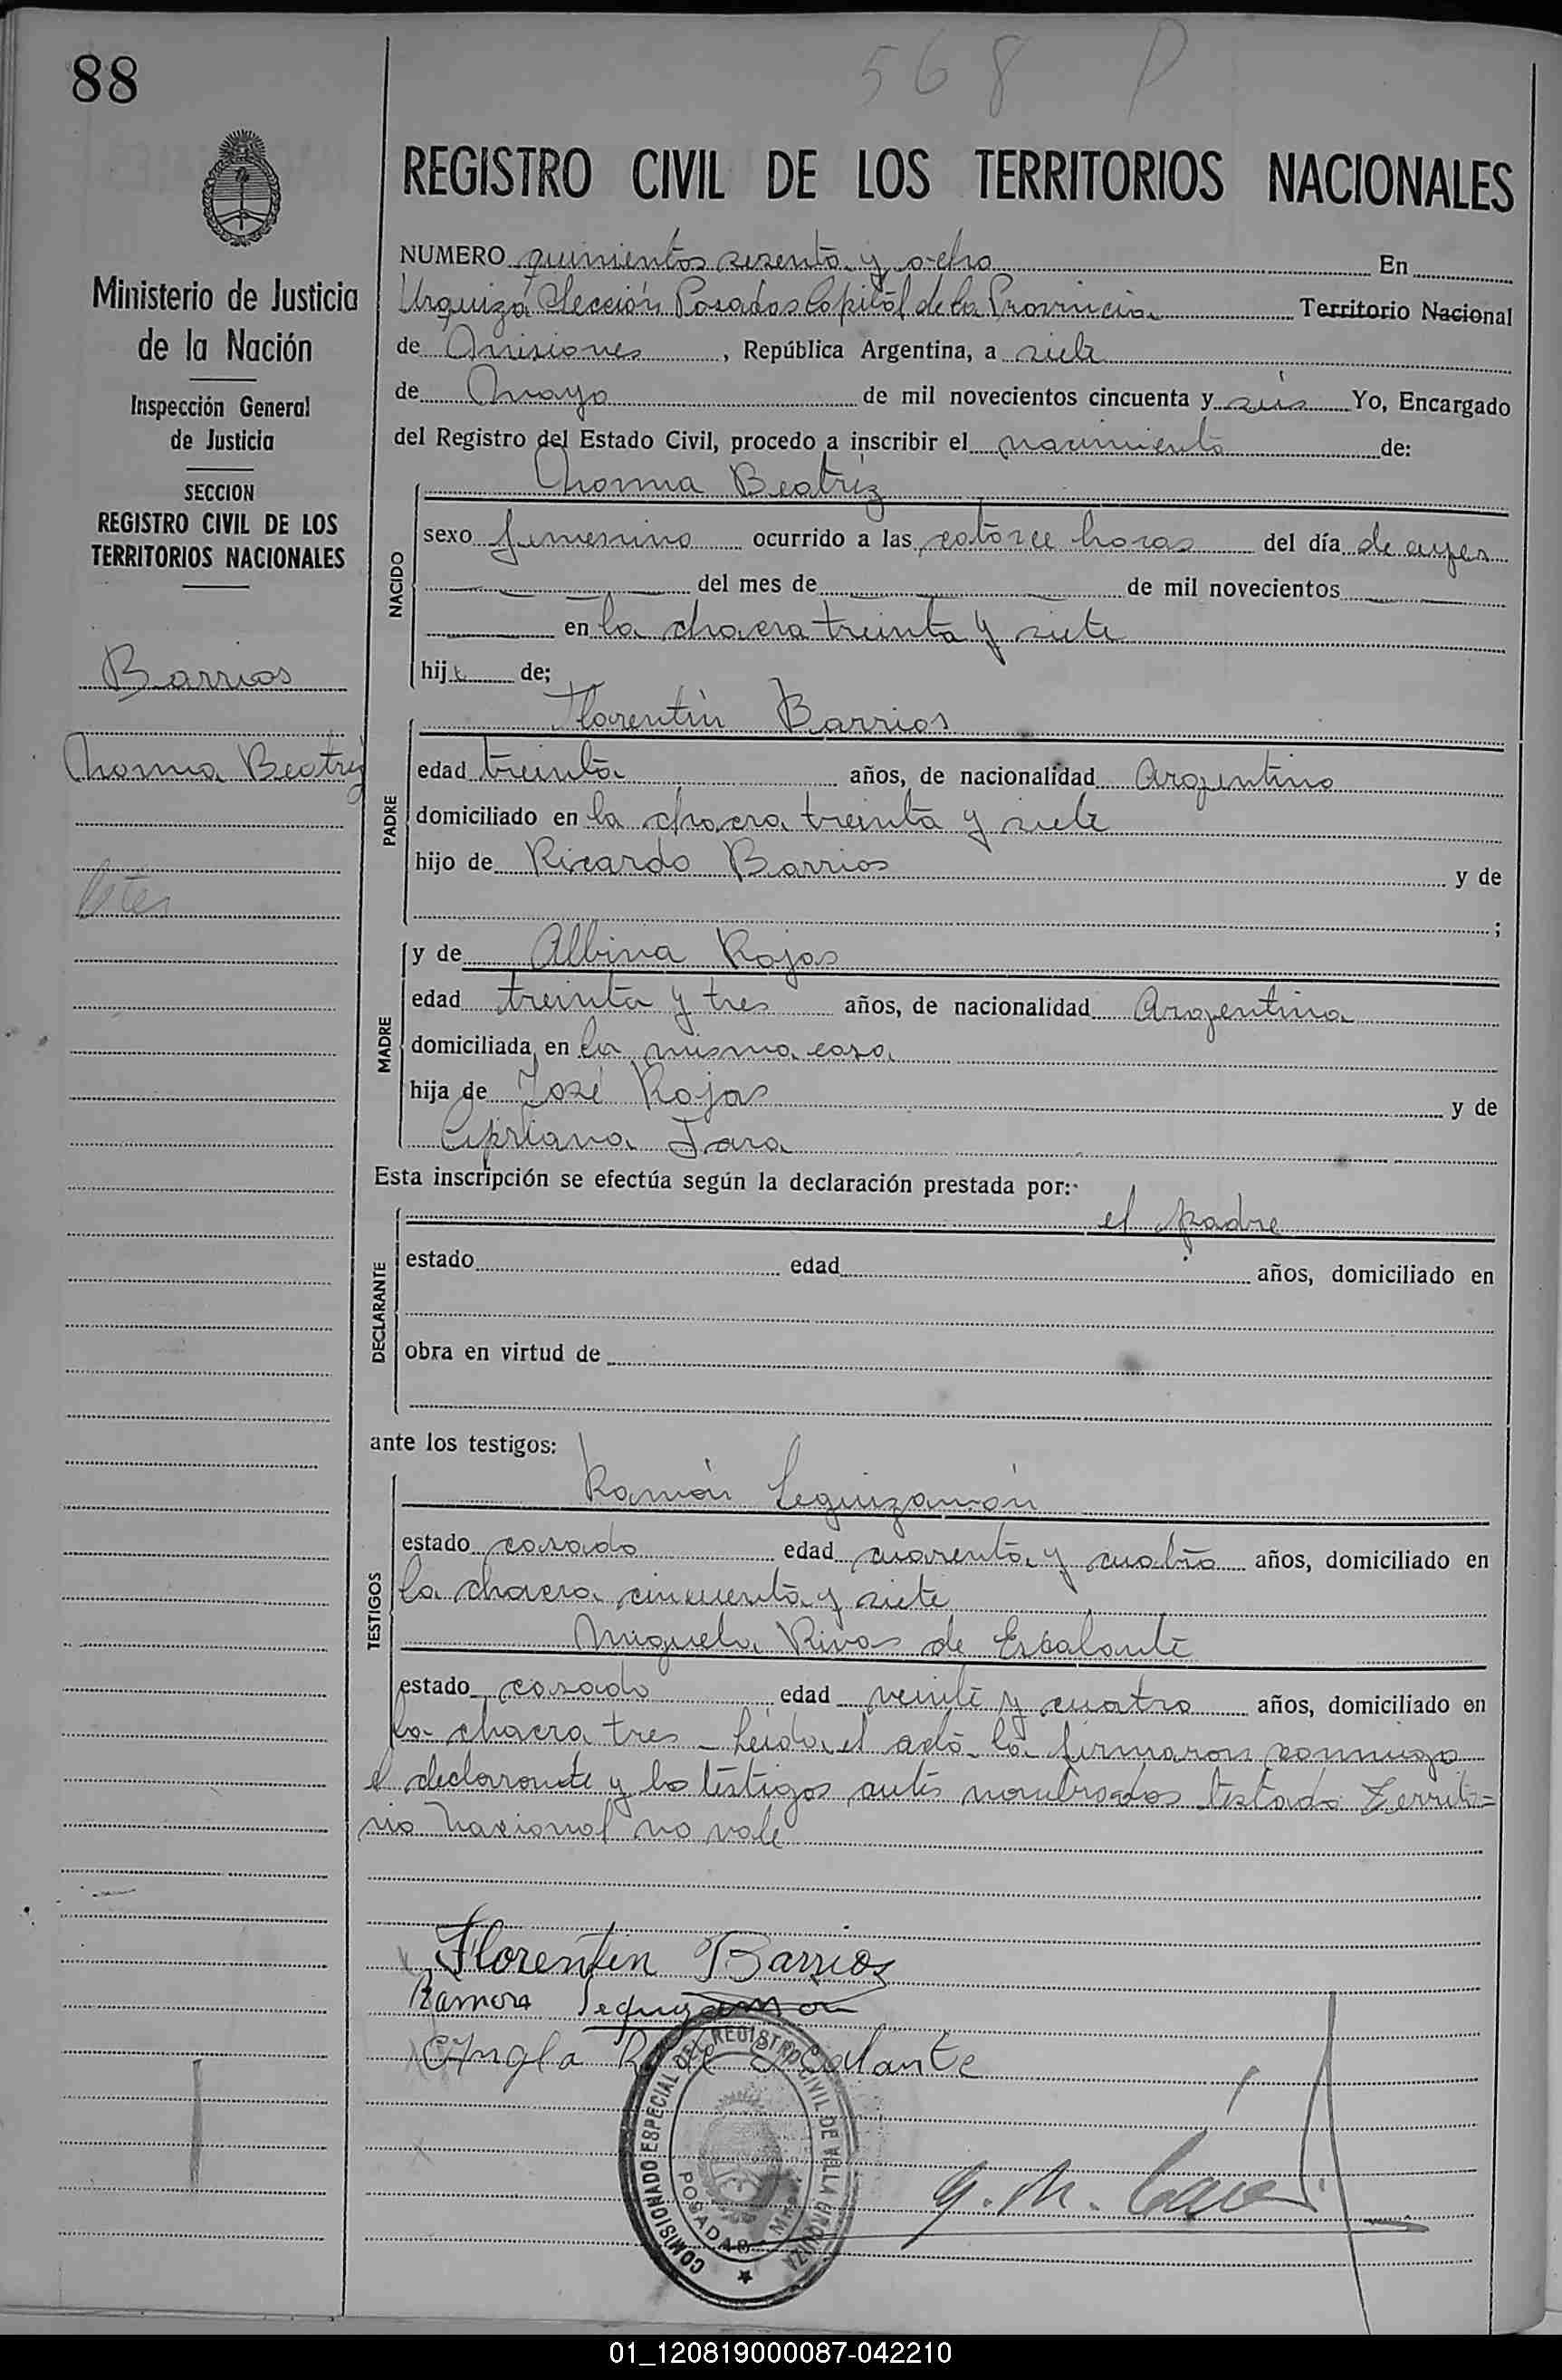 88
568 P
REGISTRO CIVIL DE LOS TERRITORIOS NACIONALES
Ministerio de Justicia
de la Nación
Inspección General
de Justicia
SECCION
REGISTRO CIVIL DE LOS
TERRITORIOS NACIONALES
Barrios
Norma Beatriz
NUMERO quinientos sesenta y ocho En
Urquiza Sección Posadas Capital de la Provincia Territorio Nacional
de Misiones, República Argentina, a siete
de Mayo de mil novecientos cincuenta y seis Yo, Encargado
del Registro del Estado Civil, procedo a inscribir el nacimiento de:
NACIDO
Norma Beatriz
sexo femenino ocurrido a las catorce horas del día de ayer
del mes de de mil novecientos
en la chacra treinta y siete
hij de;
PADRE
Florentín Barrios
edad treinta años, de nacionalidad Argentino
domiciliado en la chacra treinta y siete
hijo de Ricardo Barrios y de
;
MADRE
y de Albina Rojas
edad treinta y tres años, de nacionalidad Argentina
domiciliada en la misma casa
hija de José Rojas y de
Cipriana Jara
Esta inscripción se efectúa según la declaración prestada por:
DECLARANTE
el padre
estado edad años, domiciliado en
obra en virtud de
ante los testigos:
TESTIGOS
Ramón Leguizamón
estado casado edad cuarenta y cuatro años, domiciliado en
la chacra cincuenta y siete
Miguela Rivas de Escalante
estado casado edad veinte y cuatro años, domiciliado en
la chacra tres - Leida el acta la firmaron conmigo
el declarante y los testigos antes nombrados testado Territo=
rio Nacional no vale
Florentin Barrios
Ramon Leguizamon
Escalante
COMISIONADO ESPECIAL DEL REGISTRO CIVIL DE VILLA URQUIZA
POSADAS
01_120819000087-042210